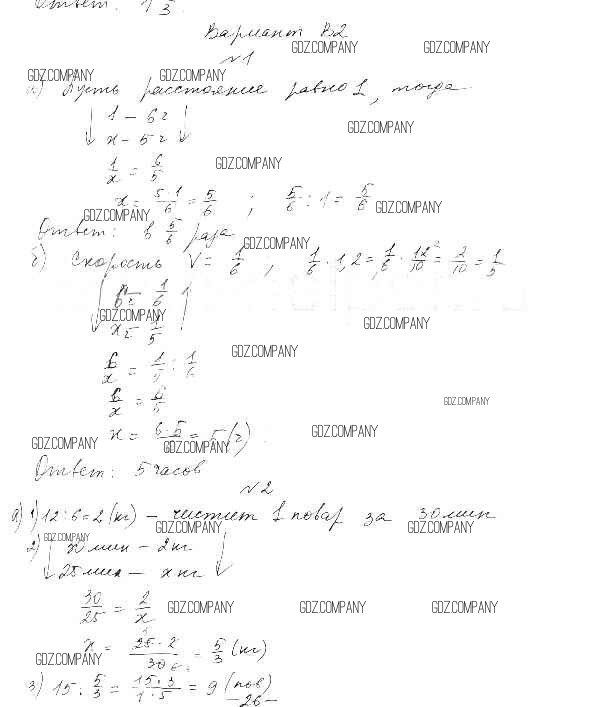 Ответ: 1 1/3.
Вариант В2
GDZ.COMPANY GDZ.COMPANY
№1
GDZ.COMPANY GDZ.COMPANY
а) Пусть расстояние равно 1, тогда
↓ 1 – 6 ч ↓
GDZ.COMPANY
↓ x – 5 ч ↓
1/x = 6/5
GDZ.COMPANY
x = 5·1/6 = 5/6 ; 5/6 : 1 = 5/6
GDZ.COMPANY GDZ.COMPANY
Ответ: в 5/6 раза
GDZ.COMPANY
б) Скорость V = 1/6 , 1/6 · 1,2 = 1/6 · 12/10 = 2/10 = 1/5
↓ 6 – 1/6 ↑
GDZ.COMPANY
x – 1/5
GDZ.COMPANY
6/x = 1/5 : 1/6
GDZ.COMPANY
6/x = 6/5
GDZ.COMPANY
x = 6·5/6 = 5 (ч)
GDZ.COMPANY GDZ.COMPANY GDZ.COMPANY
Ответ: 5 часов
№2
а) 1) 12 : 6 = 2 (кг) – чистит 1 повар за 30 мин
GDZ.COMPANY GDZ.COMPANY
GDZ.COMPANY
2) ↓ 30 мин – 2 кг ↓
↓ 25 мин – x кг ↓
30/25 = 2/x
GDZ.COMPANY GDZ.COMPANY GDZ.COMPANY
x = 25·2/30 = 5/3 (кг)
GDZ.COMPANY
3) 15 : 5/3 = 15·3/1·5 = 9 (пов)
–26–